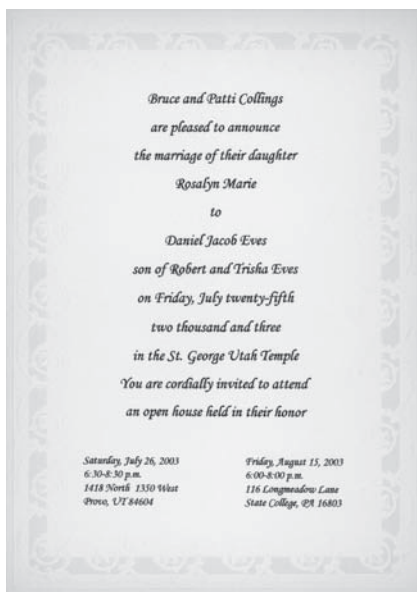 Bruce and Patti Collings
are pleased to announce
the marriage of their daughter
Rosalyn Marie
to
Daniel Jacob Eves
son of Robert and Trisha Eves
on Friday, July twenty-fifth
two thousand and three
in the St. George Utah Temple
You are cordially invited to attend
an open house held in their honor
Saturday, July 26, 2003
6:30-8:30 p.m.
1418 North 1350 West
Provo, UT 84604
Friday, August 15, 2003
6:00-8:00 p.m.
116 Longmeadow Lane
State College, PA 16803